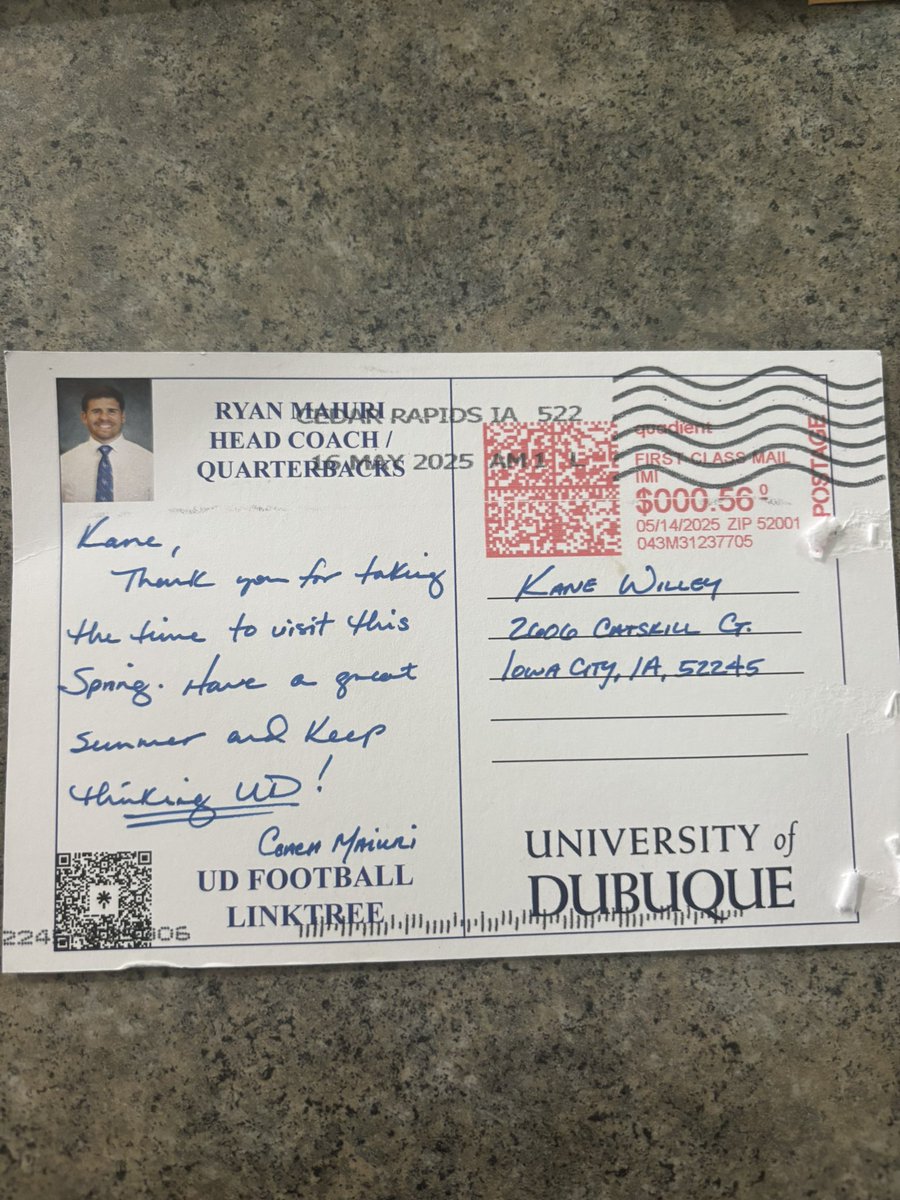 RYAN MAIURI
HEAD COACH /
QUARTERBACKS
CEDAR RAPIDS IA 522
16 MAY 2025 AM 1 L
quadient
FIRST-CLASS MAIL
IMI
$000.56⁰
05/14/2025 ZIP 52001
043M31237705
POSTAGE
Kane,
Thank you for taking
the time to visit this
Spring. Have a great
summer and keep
thinking UD!
Coach Maiuri
UD FOOTBALL
LINKTREE
KANE WILLEY
2606 CATSKILL CT.
IOWA CITY, IA, 52245
UNIVERSITY of
DUBUQUE